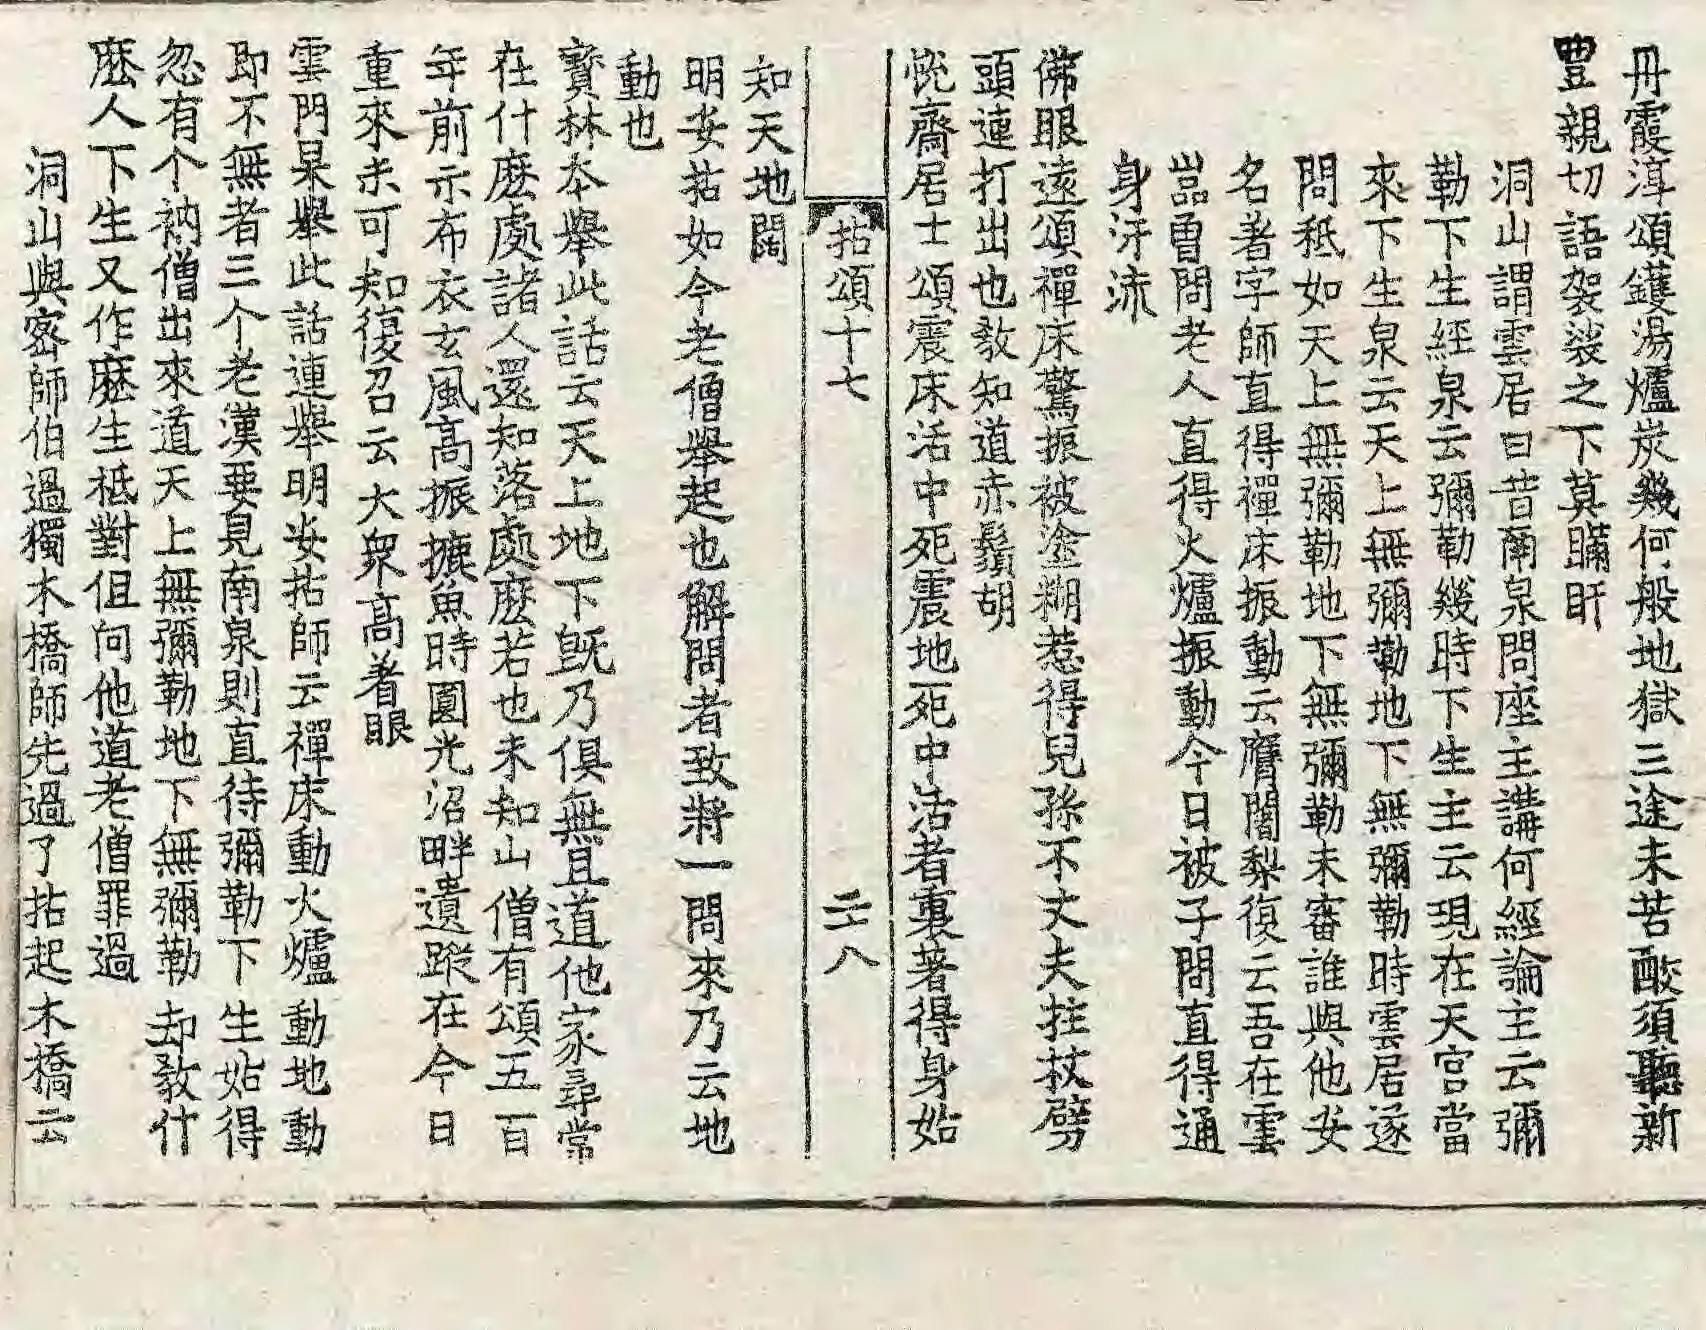 丹霞淳頌鑊湯爐炭幾何般地獄三途未苦酸須聽新
豊親切語袈裟之下莫瞞盰
洞山謂雲居曰昔南泉問座主講何經論主云彌
勒下生經泉云彌勒幾時下生主云現在天宮當
來下生泉云天上無彌勒地下無彌勒時雲居遂
問秪如天上無彌勒地下無彌勒未審誰與他安
名著字師直得禪床振動云膺闍梨復云吾在雲
嵓曾問老人直得火爐振動今日被子問直得通
身汗流
佛眼遠頌禪床驚振被塗糊惹得兒孫不丈夫拄杖劈
頭連打出也教知道赤鬚胡
恱齋居士頌震床活中死震地死中活者裏著得身始
拈頌十七
二十八
知天地闊
明安拈如今老僧舉起也解問者致將一問來乃云地
動也
寶林夲舉此話云天上地下旣乃俱無且道他家尋常
在什麽處諸人還知落處麽若也未知山僧有頌五百
年前示布衣玄風高振摝魚時圓光沼畔遺蹤在今日
重來未可知復召云大衆高着眼
雲門杲舉此話連舉明安拈師云禪床動火爐動地動
即不無者三个老漢要見南泉則直待彌勒下生始得
忽有个衲僧出來道天上無彌勒地下無彌勒却教什
麽人下生又作麽生秪對但向他道老僧罪過
洞山與密師伯過獨木橋師先過了拈起木橋云